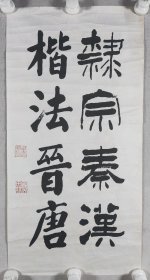 隸宗秦漢
楷法晉唐